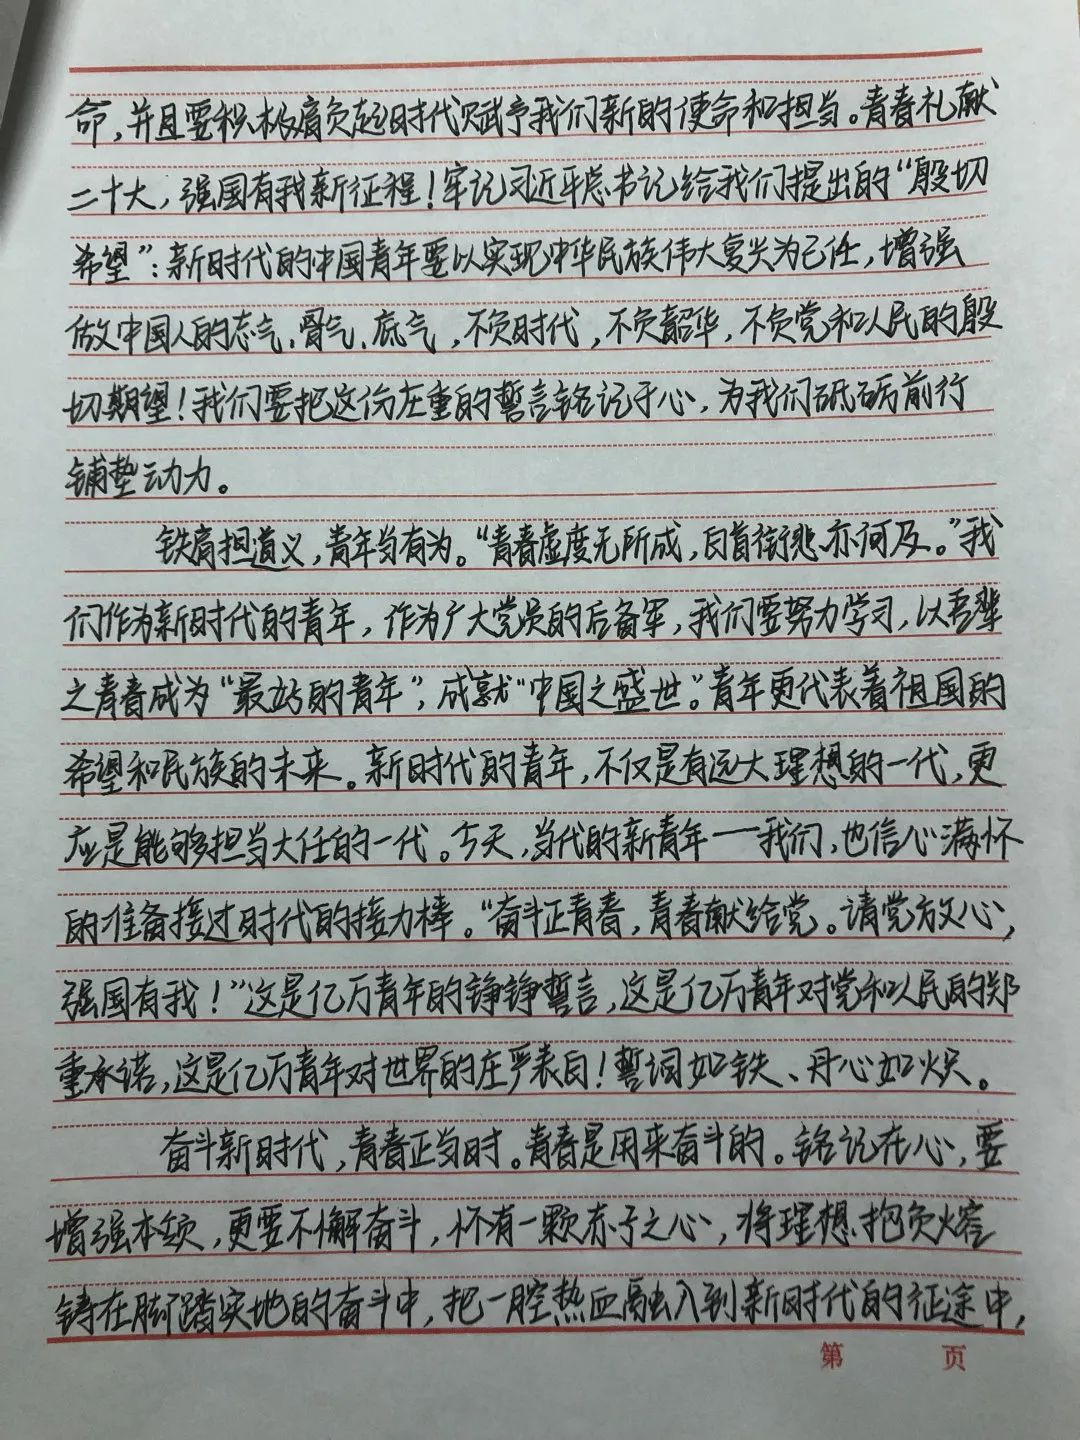 命，并且要积极肩负起时代赋予我们新的使命和担当。青春礼献
二十大，强国有我新征程！牢记习近平总书记给我们提出的“殷切
希望”：新时代的中国青年要以实现中华民族伟大复兴为己任，增强
做中国人的志气、骨气、底气，不负时代，不负韶华，不负党和人民的殷
切期望！我们要把这份庄重的誓言铭记于心，为我们砥砺前行
铺垫动力。
铁肩担道义，青年当有为。“青春虚度无所成，白首衔悲亦何及。”我
们作为新时代的青年，作为广大党员的后备军，我们要努力学习，以吾辈
之青春成为“最站的青年”，成就“中国之盛世。”青年更代表着祖国的
希望和民族的未来。新时代的青年，不仅是有远大理想的一代，更
应是能够担当大任的一代。今天，当代的新青年——我们，也信心满怀
的准备接过时代的接力棒。“奋斗正青春，青春献给党。请党放心，
强国有我！”这是亿万青年的铮铮誓言，这是亿万青年对党和人民的郑
重承诺，这是亿万青年对世界的庄严表白！誓词如铁、丹心如火。
奋斗新时代，青春正当时。青春是用来奋斗的。铭记在心，要
增强本领，更要不懈奋斗，怀有一颗赤子之心，将理想抱负熔
铸在脚踏实地的奋斗中，把一腔热血融入到新时代的征途中，
第 页